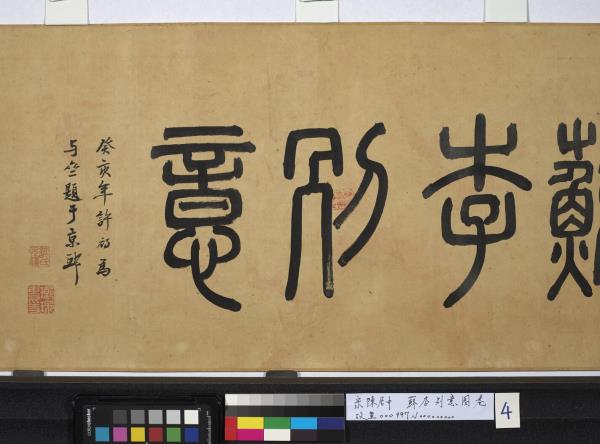 蘇李別意
癸亥年許初為
与竺題于京邸
宋陳居中 蘇李别意图卷
故畫000997N000000000
4